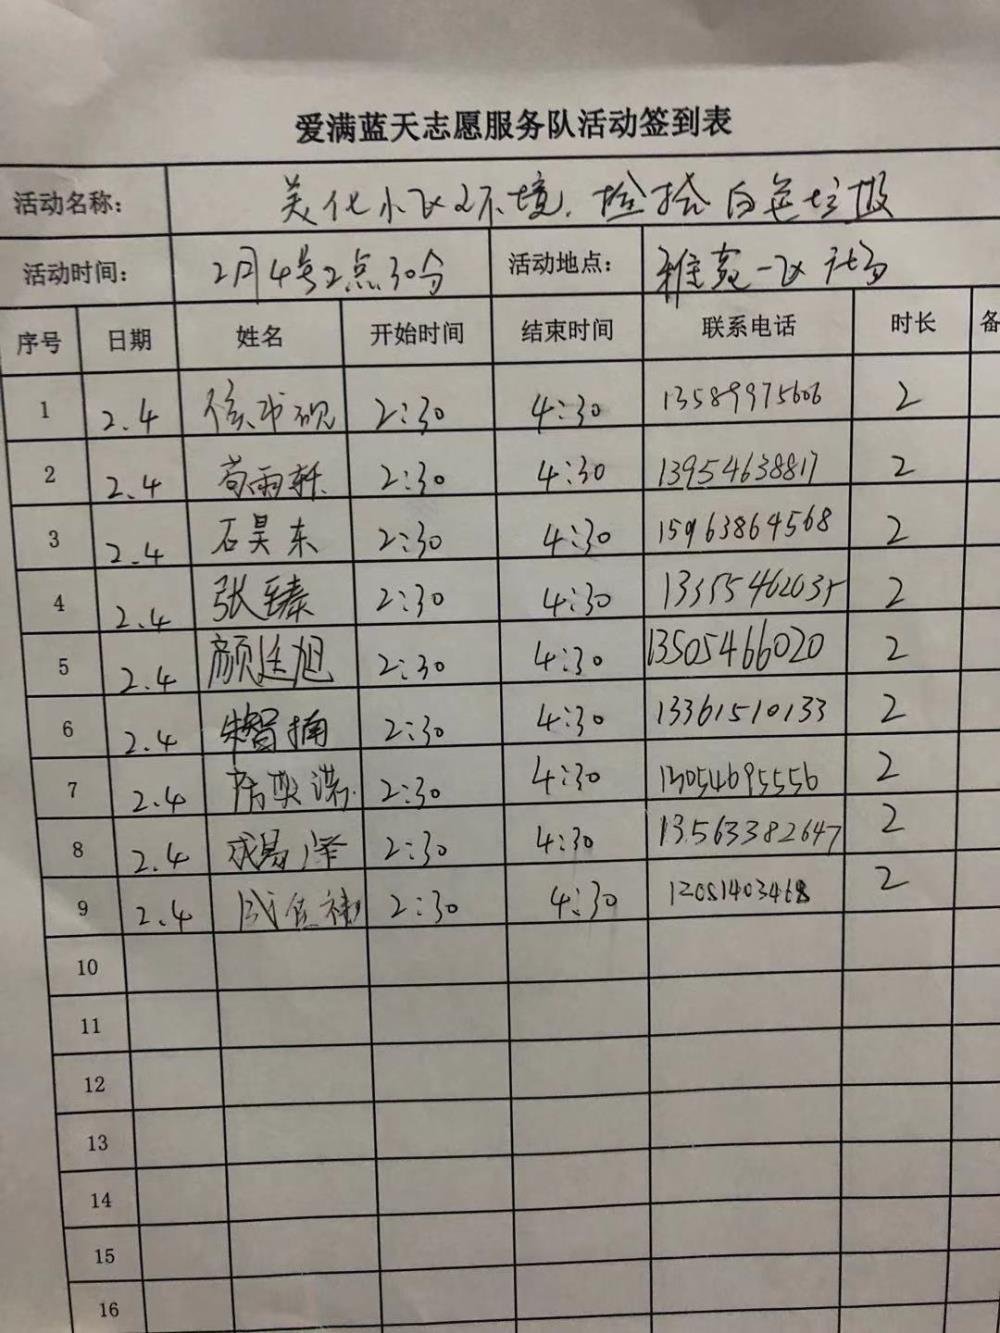 爱满蓝天志愿服务队活动签到表
活动名称: 美化小区环境、捡拾白色垃圾
活动时间: 2月4号2点30分 活动地点: 雅苑一区社区
序号 日期 姓名 开始时间 结束时间 联系电话 时长 备
1 2.4 2:30 4:30 13589975606 2
2 2.4 苟雨轩 2:30 4:30 13954638817 2
3 2.4 石昊东 2:30 4:30 15963864568 2
4 2.4 张臻 2:30 4:30 13355462035 2
5 2.4 颜廷旭 2:30 4:30 13505466020 2
6 2.4 2:30 4:30 13361510133 2
7 2.4 2:30 4:30 13054695556 2
8 2.4 成易泽 2:30 4:30 13563382647 2
9 2.4 2:30 4:30 2
10
11
12
13
14
15
16